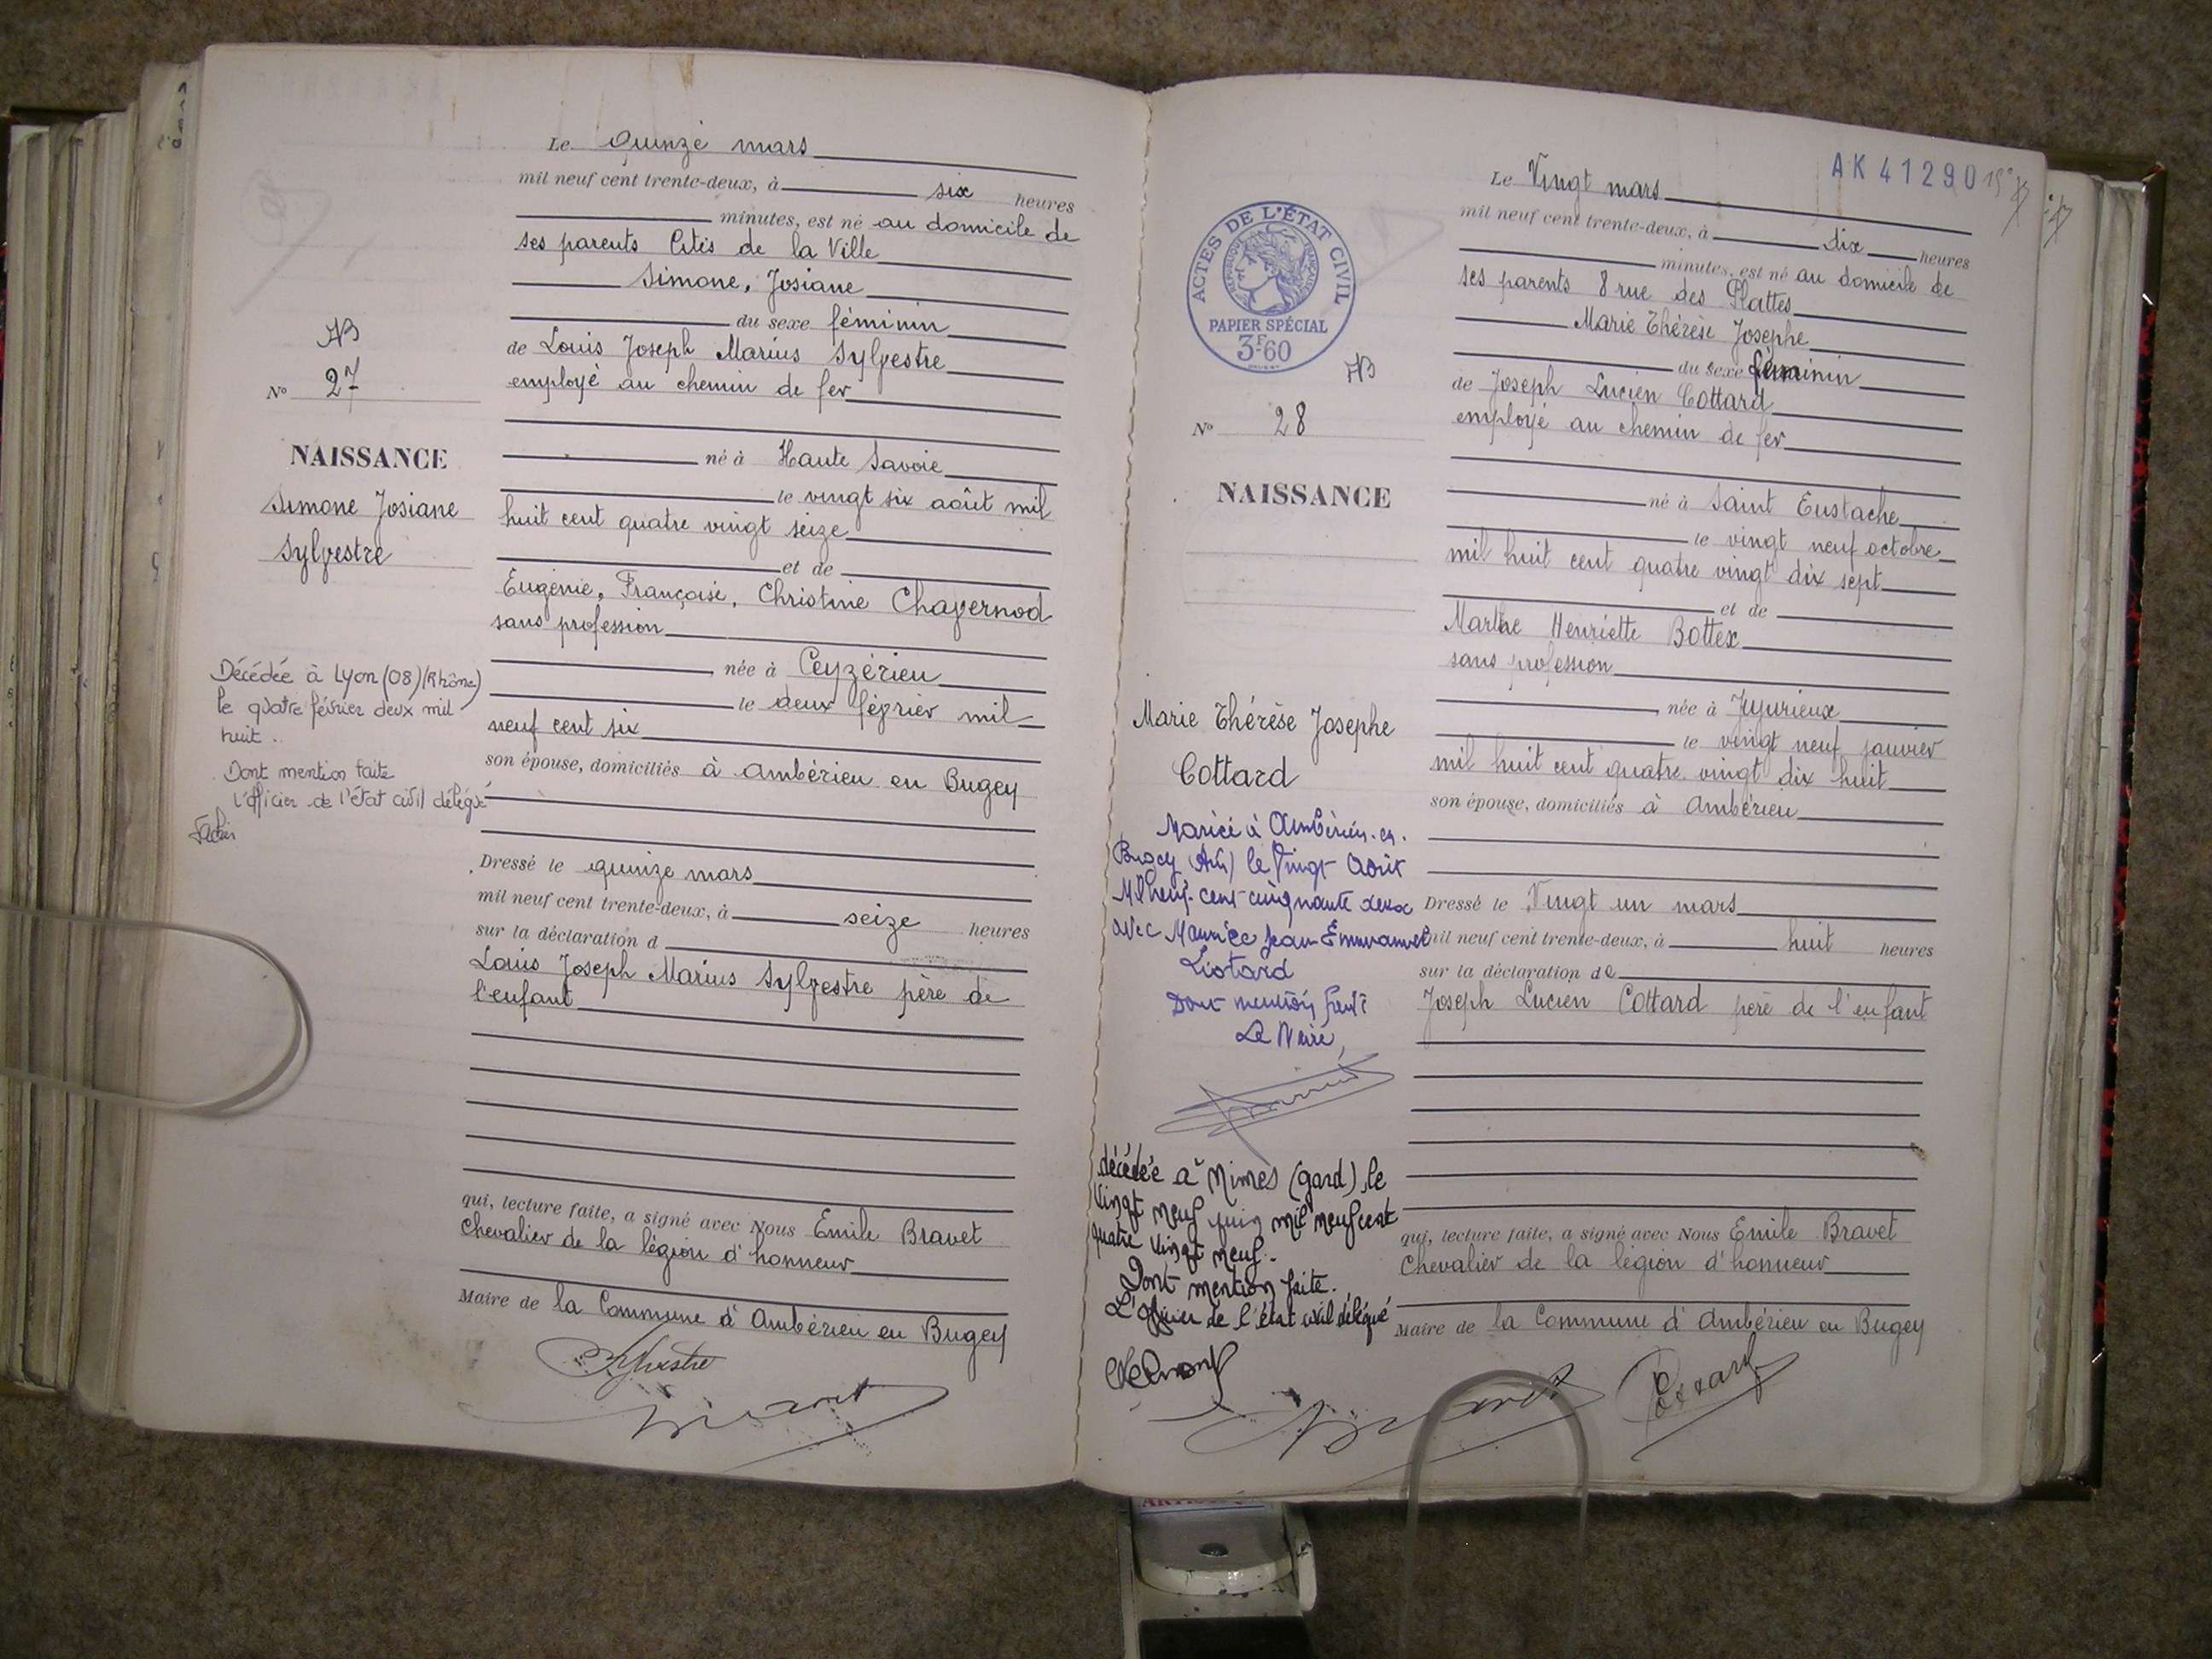 Le Quinze mars
mil neuf cent trente-deux, à six heures
minutes, est né au domicile de
ses parents Cités de la Ville
Simone, Josiane
du sexe féminin
de Louis Joseph Marius Sylvestre
employé au chemin de fer
né à Haute Savoie
le vingt six août mil
huit cent quatre vingt seize
et de
Eugénie, Françoise, Christine Chavernod
sans profession
née à Ceyzérieu
le deux février mil
neuf cent six
son épouse, domiciliés à Ambérieu en Bugey
Dressé le quinze mars
mil neuf cent trente-deux, à seize heures
sur la déclaration d
Louis Joseph Marius Sylvestre père de
l'enfant
qui, lecture faite, a signé avec Nous Emile Bravet
Chevalier de la légion d'honneur
Maire de la Commune d'Ambérieu en Bugey
Sylvestre
Bravet
AB
N° 27
NAISSANCE
Simone Josiane
Sylvestre
Décédée à Lyon (08) (Rhône)
le quatre février deux mil
huit.
Dont mention faite
L'officier de l'état civil délégué
AK 41290
ACTES DE L'ÉTAT CIVIL
RÉPUBLIQUE FRANÇAISE
PAPIER SPÉCIAL
3F.60
AB
N° 28
NAISSANCE
Marie Thérèse Josephe
Cottard
Mariée à Ambérieu-en-
Bugey (Ain) le Vingt Août
Mil neuf cent cinquante deux
avec Maurice Jean Emmanuel
Liotard
Dont mention faite
Le Maire,
décédée à Nimes (gard) le
vingt neuf juin mil neuf cent
quatre vingt neuf.
Dont mention faite.
L'officier de l'état civil délégué
Le Vingt mars
mil neuf cent trente-deux, à dix heures
minutes, est né au domicile de
ses parents 8 rue des Plattes
Marie Thérèse Josephe
du sexe féminin
de Joseph Lucien Cottard
employé au chemin de fer
né à Saint Eustache
le vingt neuf octobre
mil huit cent quatre vingt dix sept
et de
Marthe Henriette Bottex
sans profession
née à Jujurieux
le vingt neuf janvier
mil huit cent quatre vingt dix huit
son épouse, domiciliés à Ambérieu
Dressé le Vingt un mars
mil neuf cent trente-deux, à huit heures
sur la déclaration de
Joseph Lucien Cottard père de l'enfant
qui, lecture faite, a signé avec Nous Emile Bravet
Chevalier de la légion d'honneur
Maire de la Commune d'Ambérieu en Bugey
Bravet Cottard